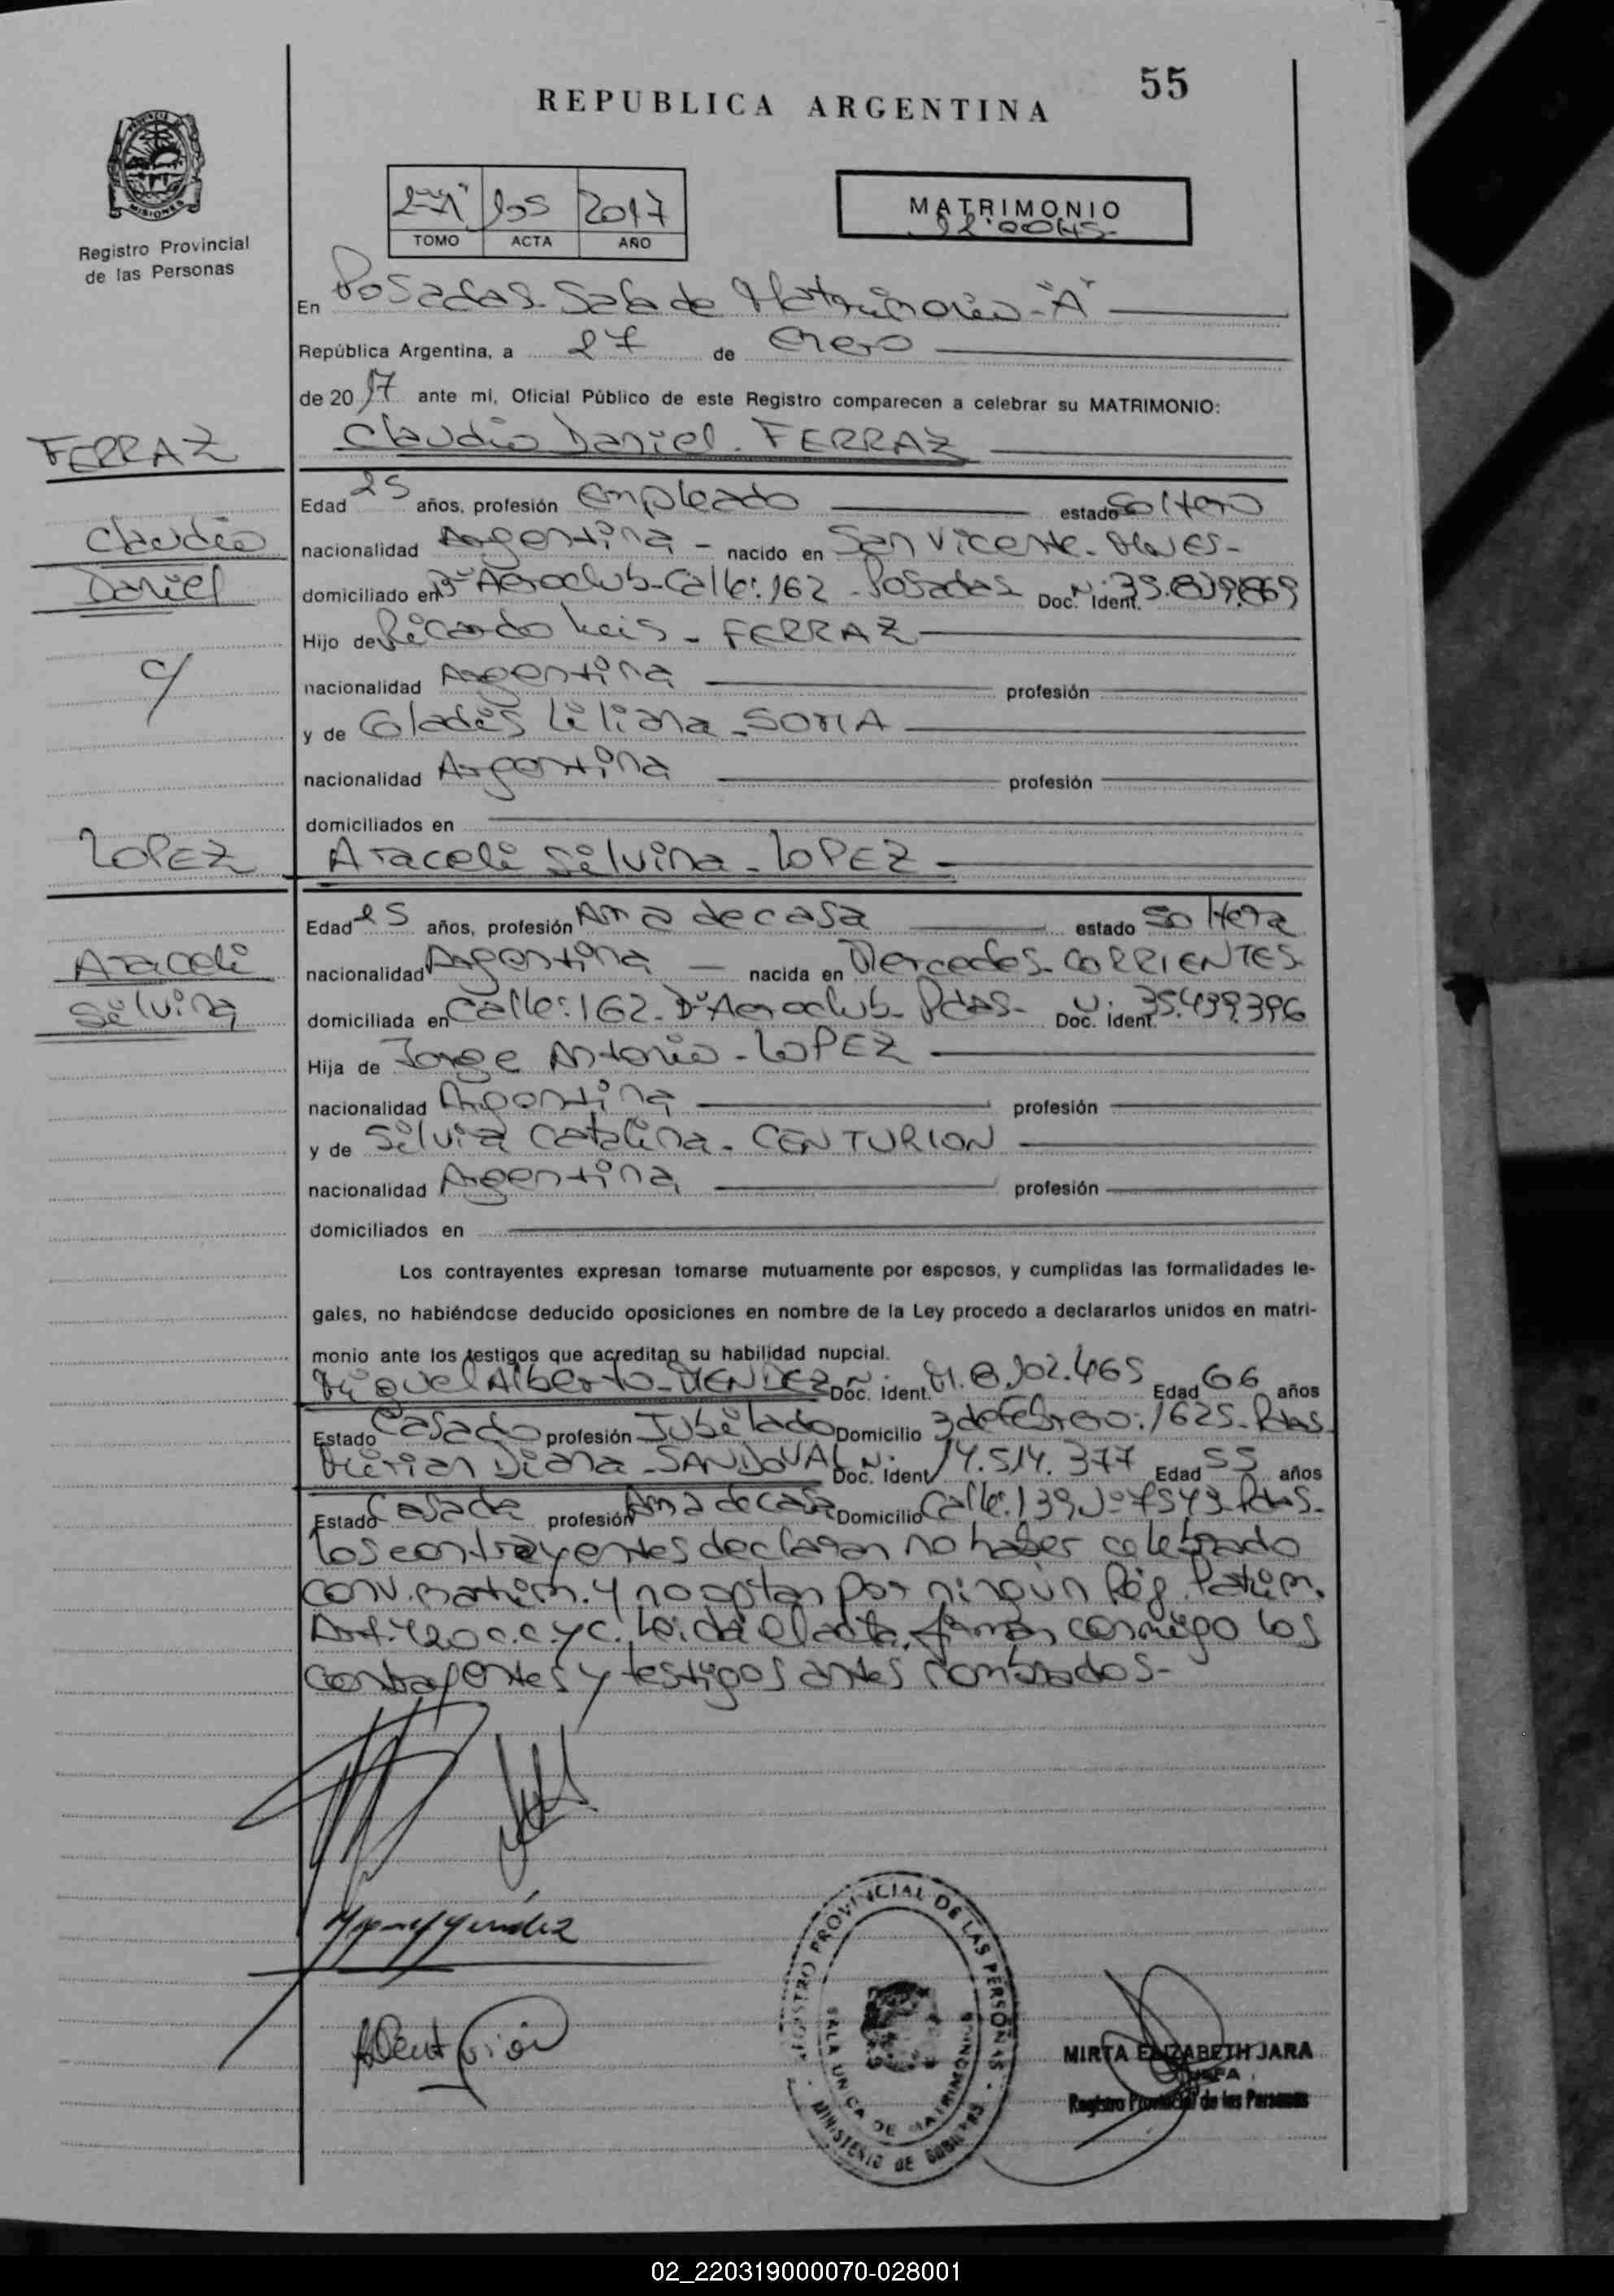 55
REPUBLICA ARGENTINA
Registro Provincial
de las Personas
105 2017
TOMO ACTA AÑO
MATRIMONIO
En Posadas - Sala de Matrimonio - "A"
República Argentina, a 27 de Enero
de 2017 ante mí, Oficial Público de este Registro comparecen a celebrar su MATRIMONIO:
FERRAZ
Claudio Daniel - FERRAZ
Edad 25 años, profesión Empleado estado Soltero
Claudio
nacionalidad Argentina - nacido en San Vicente -
Daniel
domiciliado en Bº Aeroclub - Calle: 162 - Posadas Doc. Ident.
Hijo de Ricardo Luis - FERRAZ
c/
nacionalidad Argentina profesión
y de Gladis Liliana - SORIA
nacionalidad Argentina profesión
domiciliados en
LOPEZ
Araceli Silvina - LOPEZ
Edad 25 años, profesión Ama de casa estado Soltera
Araceli
nacionalidad Argentina - nacida en Mercedes - CORRIENTES
Silvina
domiciliada en Calle: 162 - Bº Aeroclub - Pdas - Doc. Ident. 35.439.396
Hija de Jorge Antonio - LOPEZ
nacionalidad Argentina profesión
y de Silvia Catalina - CENTURION
nacionalidad Argentina profesión
domiciliados en
Los contrayentes expresan tomarse mutuamente por esposos, y cumplidas las formalidades le-
gales, no habiéndose deducido oposiciones en nombre de la Ley procedo a declararlos unidos en matri-
monio ante los testigos que acreditan su habilidad nupcial.
Miguel Alberto - MENDEZ Doc. Ident. M. 8.302.465 Edad 66 años
Estado Casado profesión Jubilado Domicilio 3 de Febrero: 1625 - Pdas
Mirian Diana - SANDOVAL Doc. Ident. 14.514.377 Edad 55 años
Estado Casada profesión Ama de casa Domicilio Calle: 139 Nº 7543 - Pdas -
Los contrayentes declaran no haber celebrado
conv. matrim. y no optan por ningún Rég. Patrim.
Art. 420 C.C. y C. Leida el acta, firman conmigo los
contrayentes y testigos antes nombrados -
REGISTRO PROVINCIAL DE LAS PERSONAS
SALA UNICA DE MATRIMONIOS
MINISTERIO DE GOBIERNO
MIRTA ELIZABETH JARA
JEFA
Registro Provincial de las Personas
02_220319000070-028001